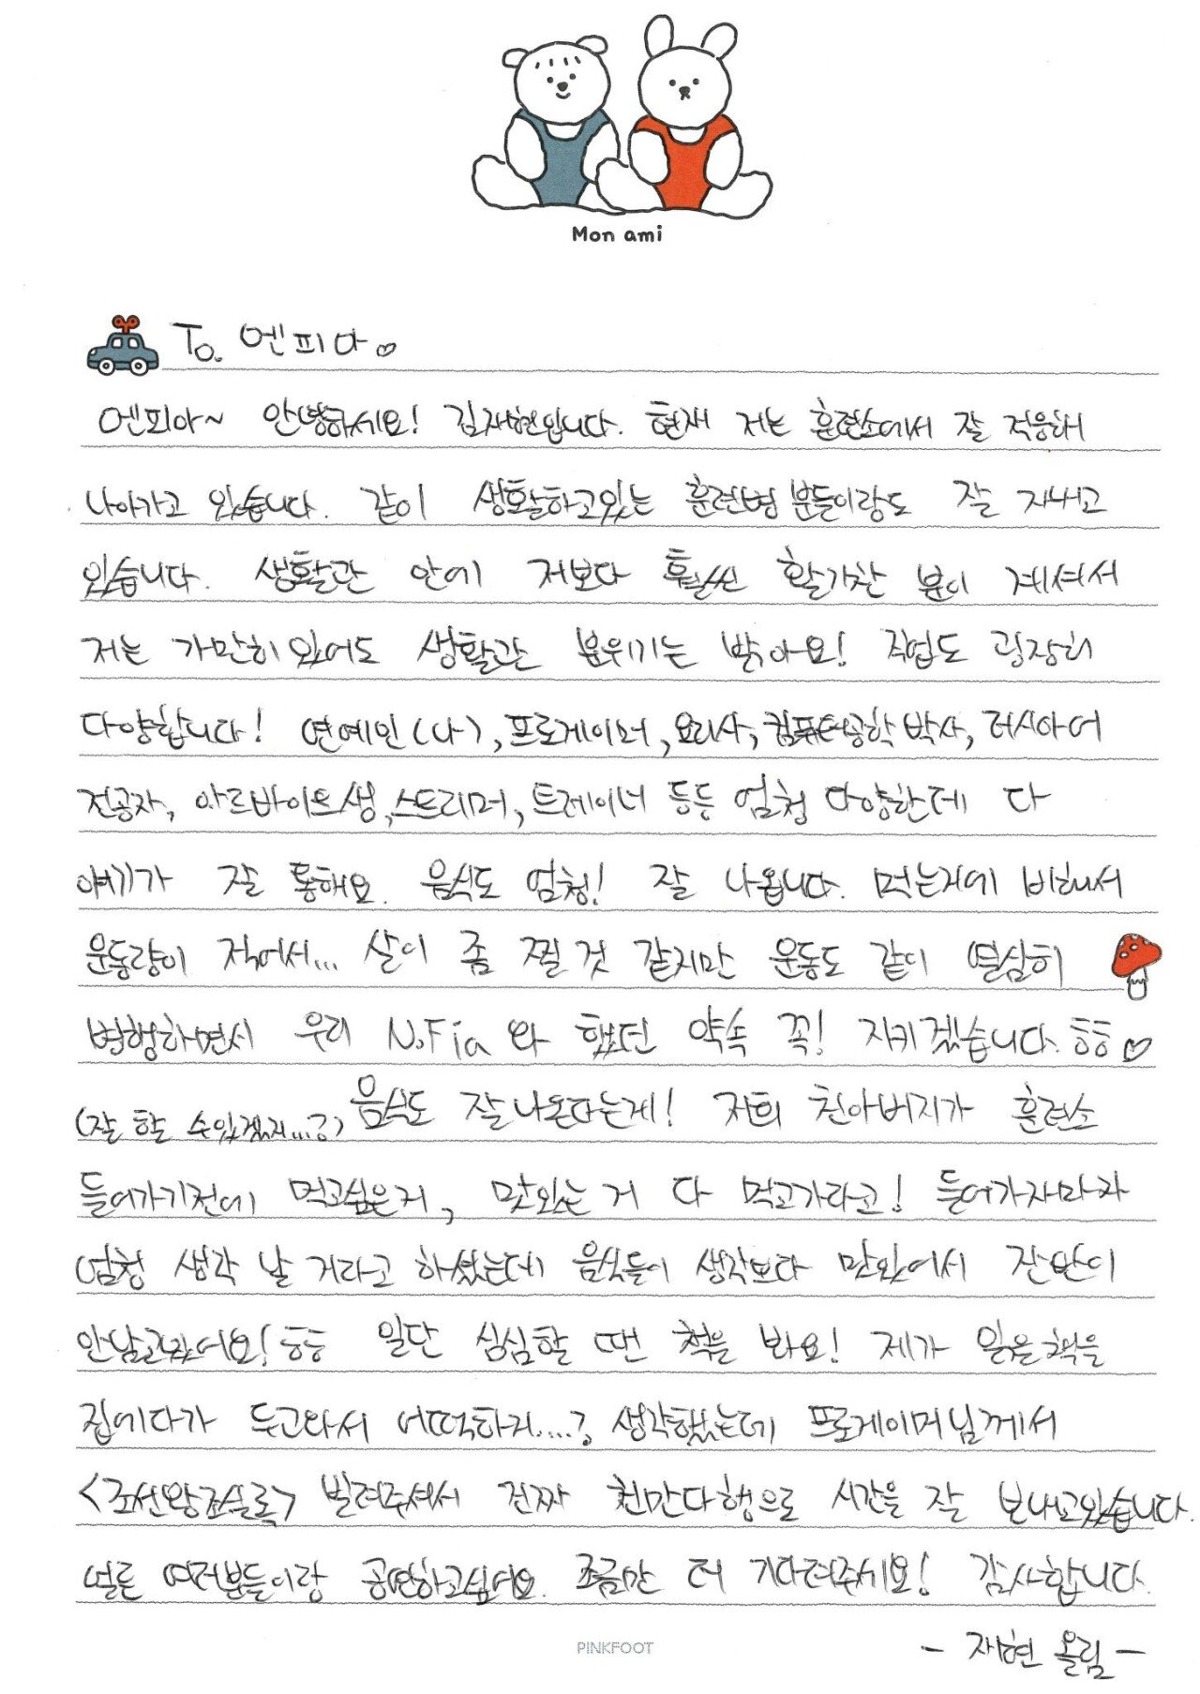 Mon ami
To. 엔피아♡
엔피아~ 안녕하세요! 김재현입니다. 현재 저는 훈련소에서 잘 적응해
나아가고 있습니다. 같이 생활하고있는 훈련병 분들이랑도 잘 지내고
있습니다. 생활관 안에 저보다 훨씬 활기찬 분이 계셔서
저는 가만히 있어도 생활관 분위기는 밝아요! 직업도 굉장히
다양합니다! 연예인(나), 프로게이머, 요리사, 컴퓨터공학 박사, 러시아어
전공자, 아르바이트생, 스트리머, 트레이너 등등 엄청 다양한데 다
얘기가 잘 통해요. 음식도 엄청! 잘 나옵니다. 먹는거에 비해서
운동량이 적어서... 살이 좀 찔 것 같지만 운동도 같이 열심히
병행하면서 우리 N.Fia 와 했던 약속 꼭! 지키겠습니다. ㅎㅎ♡
(잘 할 수있겠지...?) 음식도 잘나온다는게! 저희 친아버지가 훈련소
들어가기전에 먹고싶은거, 맛있는 거 다 먹고가라고! 들어가자마자
엄청 생각 날 거라고 하셨는데 음식들이 생각보다 맛있어서 잔반이
안남고있어요! ㅎㅎ 일단 심심할 땐 책을 봐요! 제가 읽을책을
집에다가 두고와서 어떡하지....? 생각했는데 프로게이머님께서
<조선왕조실록> 빌려주셔서 진짜 천만다행으로 시간을 잘 보내고있습니다.
얼른 여러분들이랑 공연하고싶어요. 조금만 더 기다려주세요! 감사합니다.
- 재현 올림 -
PINKFOOT